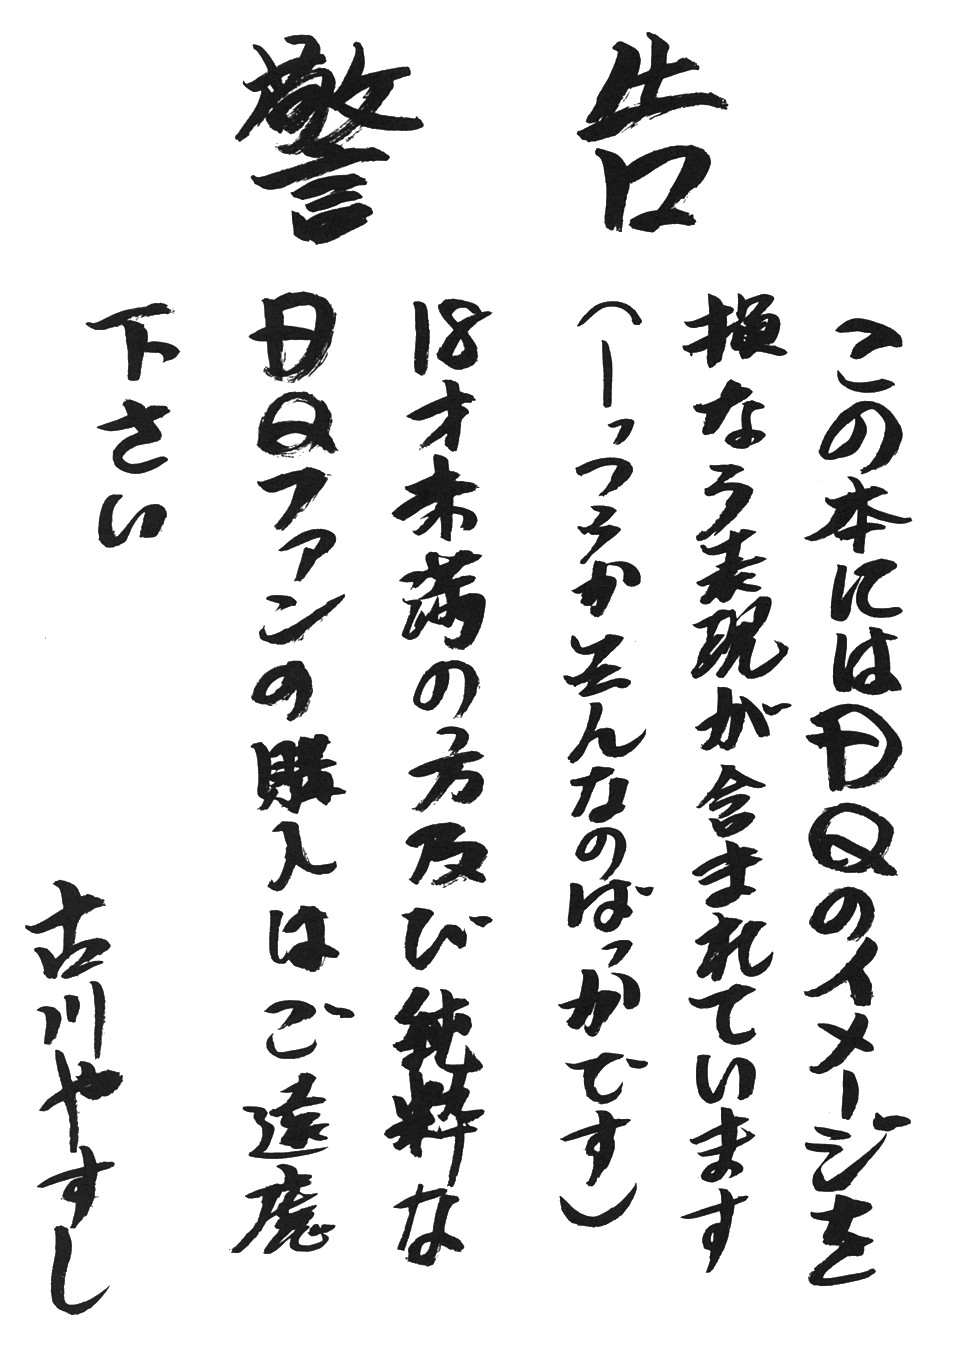 警告
この本にはDQのイメージを
損なう表現が含まれています
(ーっつうかそんなのばっかです)
18才未満の方及び純粋な
DQファンの購入はご遠慮
下さい
古川やすし